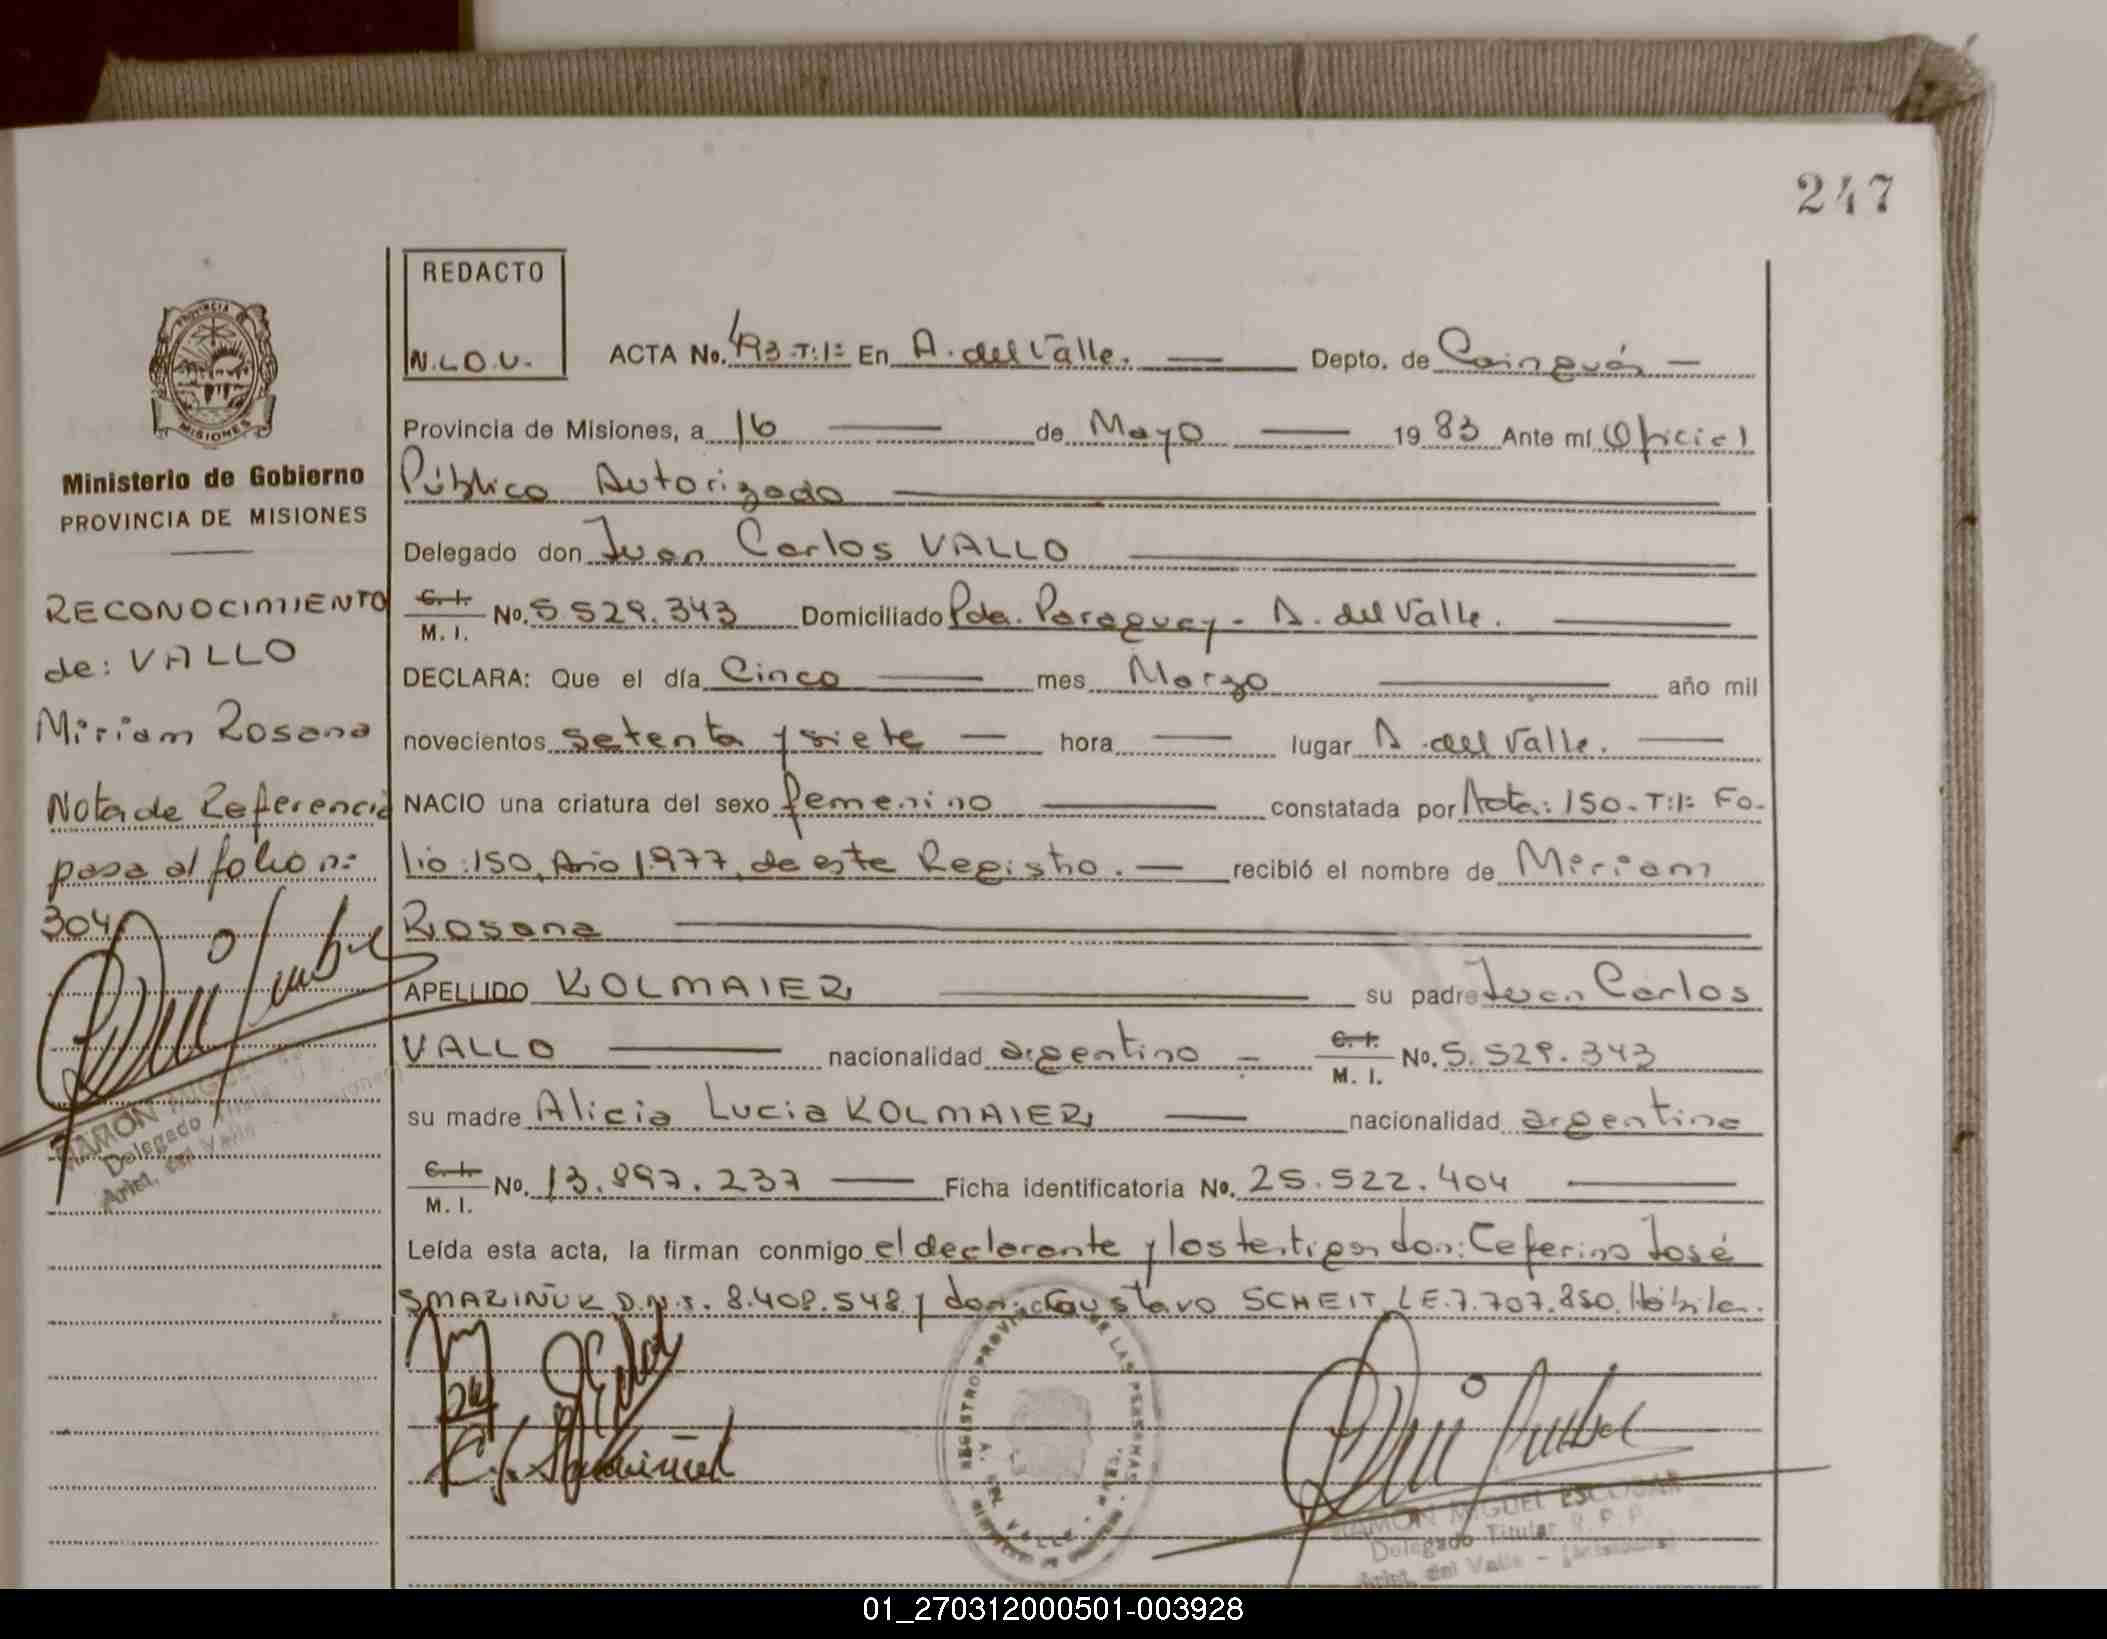 247
REDACTO
N.L.O.V.
ACTA No. 493-T:1= En A. del Valle. Depto. de Cainguás
PROVINCIA
MISIONES
Ministerio de Gobierno
PROVINCIA DE MISIONES
RECONOCIMIENTO
de: VALLO
Miriam Rosana
Nota de Referencia
pasa al folio n:
304
RAMON MIGUEL
Delegado Titular
Arist. del Valle - (Misiones)
Provincia de Misiones, a 16 de Mayo 19 83 Ante mí Oficial
Público Autorizado
Delegado don Juan Carlos VALLO
C. I. M. I. No. 5.529.343 Domiciliado Pda. Paraguay - A. del Valle.
DECLARA: Que el día Cinco mes Marzo año mil
novecientos setenta y siete hora lugar A. del Valle.
NACIO una criatura del sexo femenino constatada por Acta: 150-T:1: Fo-
lio: 150, Año 1.977, de este Registro. recibió el nombre de Miriam
Rosana
APELLIDO KOLMAIER su padre Juan Carlos
VALLO nacionalidad argentino C. I. M. I. No. 5.529.343
su madre Alicia Lucia KOLMAIER nacionalidad argentina
C. I. M. I. No. 13.897.237 Ficha identificatoria No. 25.522.404
Leída esta acta, la firman conmigo el declarante y los testigos don: Ceferino José
SMARIÑUK D.N.I. 8.408.548 y don: Gustavo SCHEIT LE.7.707.850. Hábiles.
REGISTRO PROVINCIAL DE LAS PERSONAS
A. DEL VALLE
RAMON MIGUEL ESCOBAR
Delegado Titular R. P. P.
Arist. del Valle - (Misiones)
01_270312000501-003928